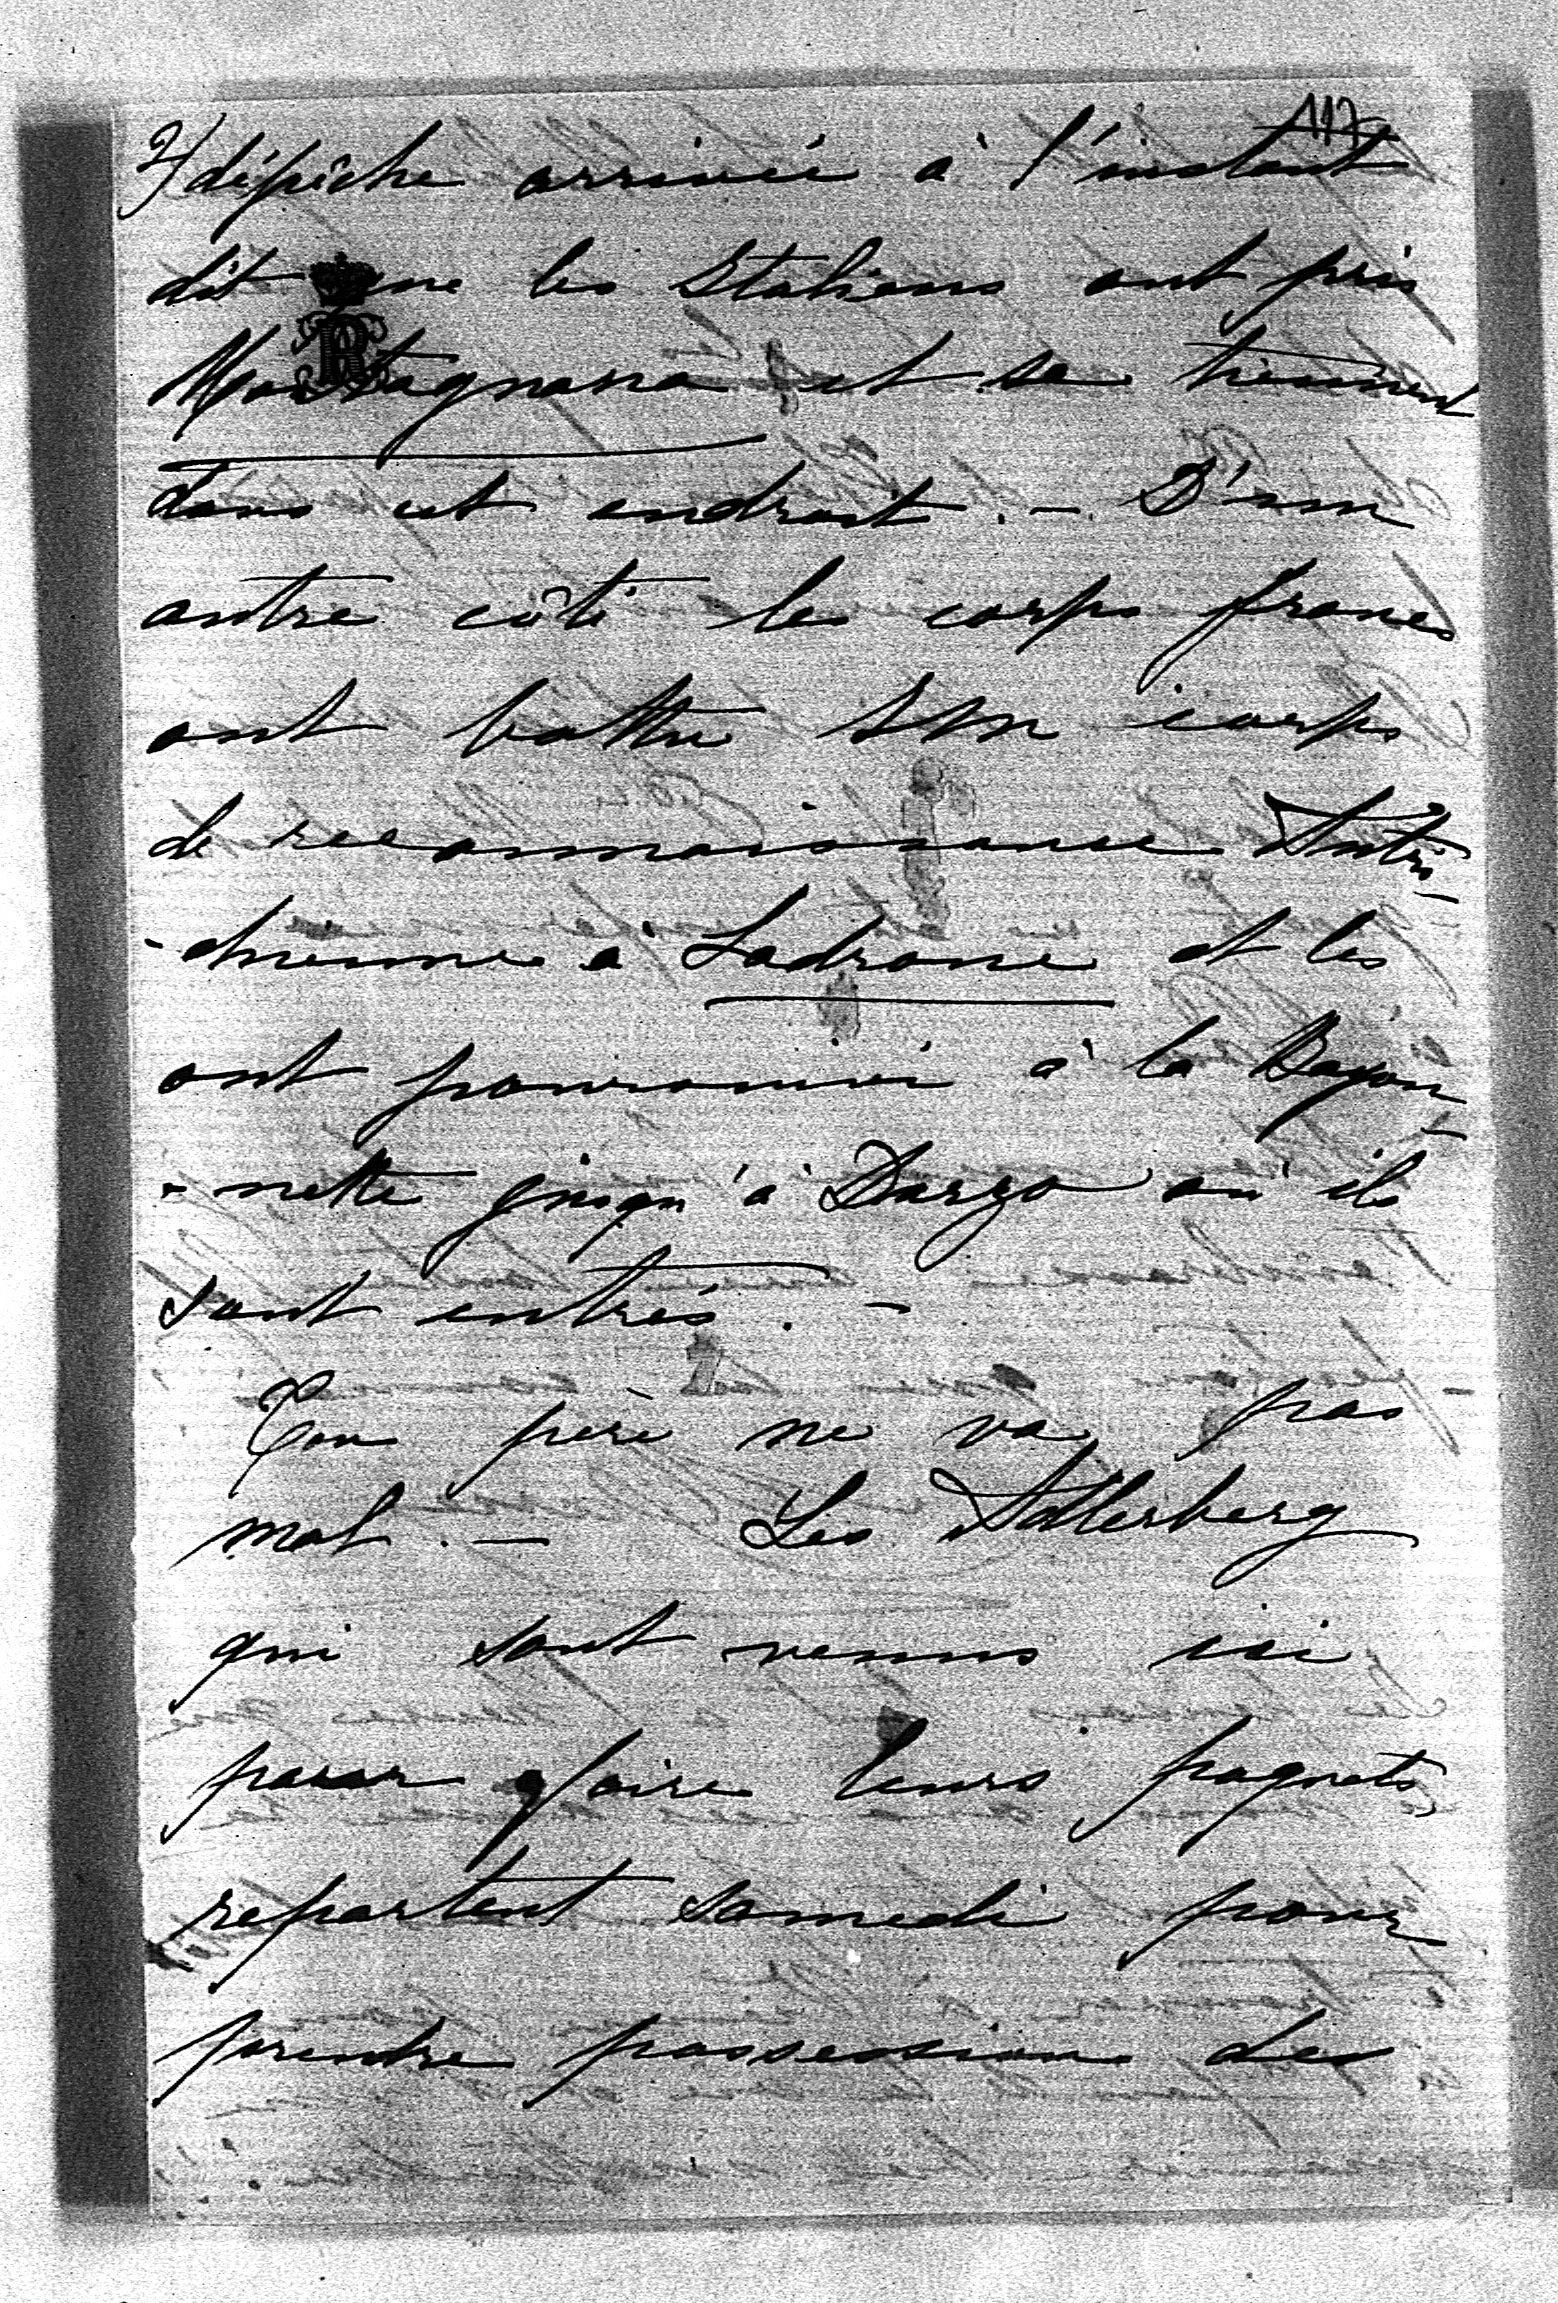 117
2) dépêche arrivée à l'instant
dit que les Italiens ont pris
Montagnana et se tiennent
dans cet endroit. — D'un
autre côté les corps francs
ont battu un corps
de reconnaissance Autri-
-chienne à Ladrone et les
ont poursuivi à la Bayon-
-nette jusqu'à Darzo où ils
sont entrés. —
Ton père ne va pas
mal. — Les Adlerberg
qui sont venus ici
pour faire leurs paquets
repartent samedi pour
prendre possession des